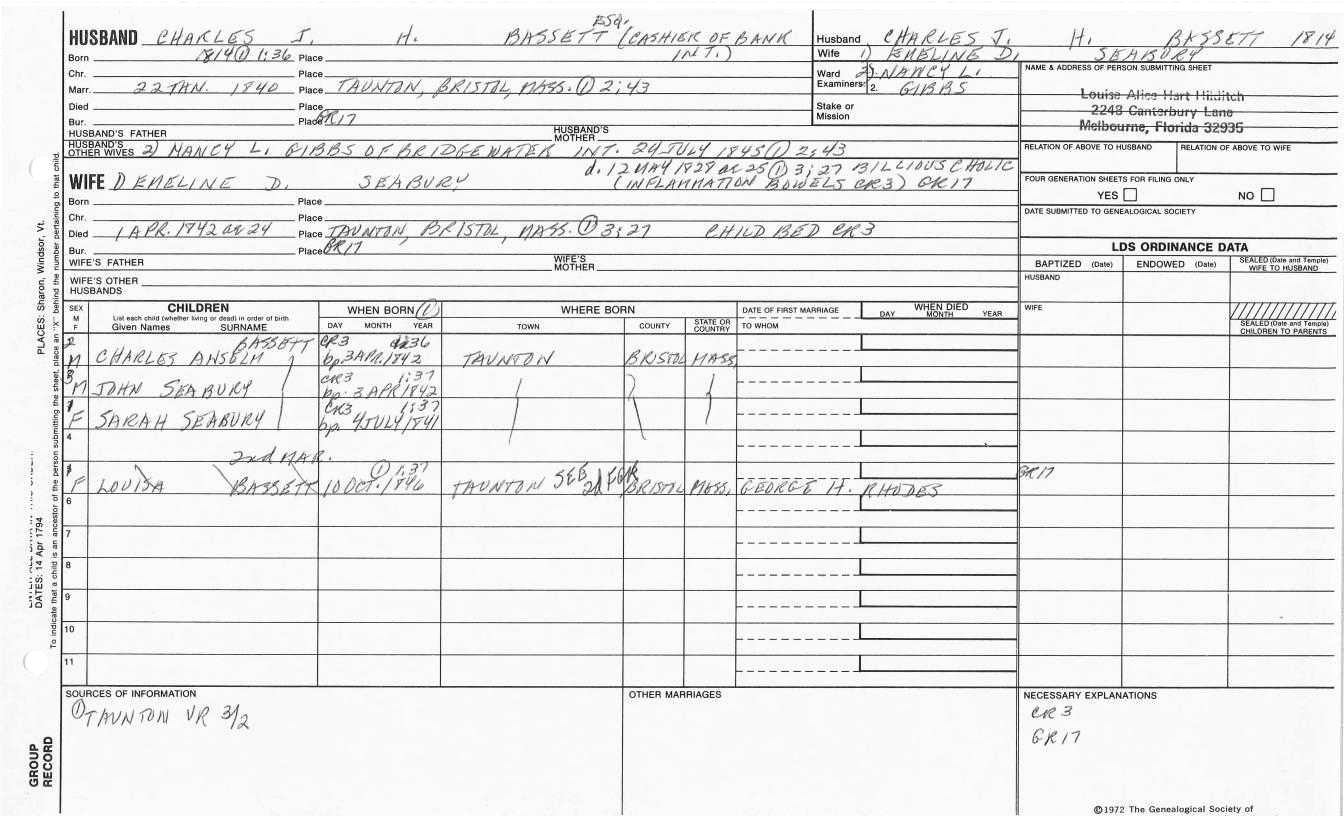 ESQ.
HUSBAND CHARLES J. H. BASSETT (CASHIER OF BANK
INT.)
Born 1814 ① 1:36 Place
Chr. Place
Marr. 22 JAN. 1840 Place TAUNTON, BRISTOL, MASS. ① 2:43
Died Place
Bur. Place GR17
HUSBAND'S FATHER HUSBAND'S MOTHER
HUSBAND'S OTHER WIVES 2) NANCY L. GIBBS OF BRIDGEWATER INT. 24 JULY 1845 ① 2:43
d. 12 MAY 1829 ae 25 ① 3:27 BILLIOUS CHOLIC
WIFE 1) EMELINE D. SEABURY (INFLAMMATION BOWELS CR3) GR17
Born Place
Chr. Place
Died 1 APR. 1842 ae 24 Place TAUNTON, BRISTOL, MASS. ① 3:27 CHILD BED CR3
Bur. Place GR17
WIFE'S FATHER WIFE'S MOTHER
WIFE'S OTHER HUSBANDS
Husband CHARLES J. H. BASSETT 1814
Wife 1) EMELINE D. SEABURY
Ward 2) NANCY L.
Examiners: 2. GIBBS
Stake or Mission
NAME & ADDRESS OF PERSON SUBMITTING SHEET
Louise Alice Hart Hilditch
2248 Canterbury Lane
Melbourne, Florida 32935
RELATION OF ABOVE TO HUSBAND RELATION OF ABOVE TO WIFE
FOUR GENERATION SHEETS FOR FILING ONLY
YES NO
DATE SUBMITTED TO GENEALOGICAL SOCIETY
LDS ORDINANCE DATA
BAPTIZED (Date) ENDOWED (Date) SEALED (Date and Temple) WIFE TO HUSBAND
HUSBAND
WIFE
SEALED (Date and Temple) CHILDREN TO PARENTS
SEX M F CHILDREN WHEN BORN ① WHERE BORN DATE OF FIRST MARRIAGE WHEN DIED
List each child (whether living or dead) in order of birth
Given Names SURNAME DAY MONTH YEAR TOWN COUNTY STATE OR COUNTRY TO WHOM DAY MONTH YEAR
2 BASSETT CR3 36
M CHARLES ANSELM bp. 3 APR. 1842 TAUNTON BRISTOL MASS,
3 CR3 1:37
M JOHN SEABURY bp. 3 APR 1842
1 CR3 1:37
F SARAH SEABURY bp. 4 JULY 1841
4
2nd MAR.
① 1:37 GR17
F LOUISA BASSETT 10 OCT. 1846 TAUNTON SEE BRISTOL MASS, GEORGE H. RHODES
6
7
8
9
10
11
SOURCES OF INFORMATION
① TAUNTON VR 3/2
OTHER MARRIAGES
NECESSARY EXPLANATIONS
CR3
GR17
©1972 The Genealogical Society of
PLACES: Sharon, Windsor, Vt.
DATES: 14 Apr 1794
To indicate that a child is an ancestor of the person submitting the sheet, place an "X" behind the number pertaining to that child.
GROUP RECORD